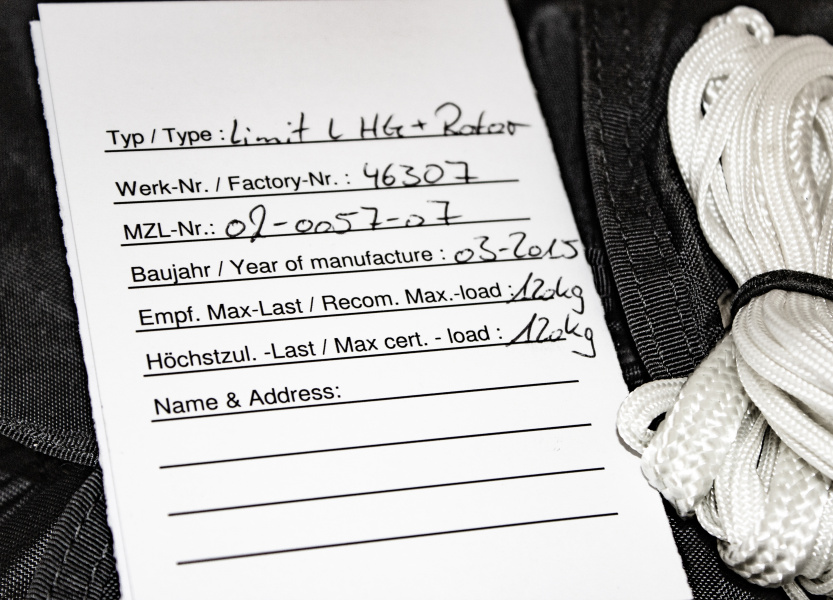 Typ / Type : Limit L HG + Rotor
Werk-Nr. / Factory-Nr. : 46307
MZL-Nr.: 02-0057-07
Baujahr / Year of manufacture : 03-2015
Empf. Max-Last / Recom. Max.-load : 120kg
Höchstzul. -Last / Max cert. - load : 120kg
Name & Address: